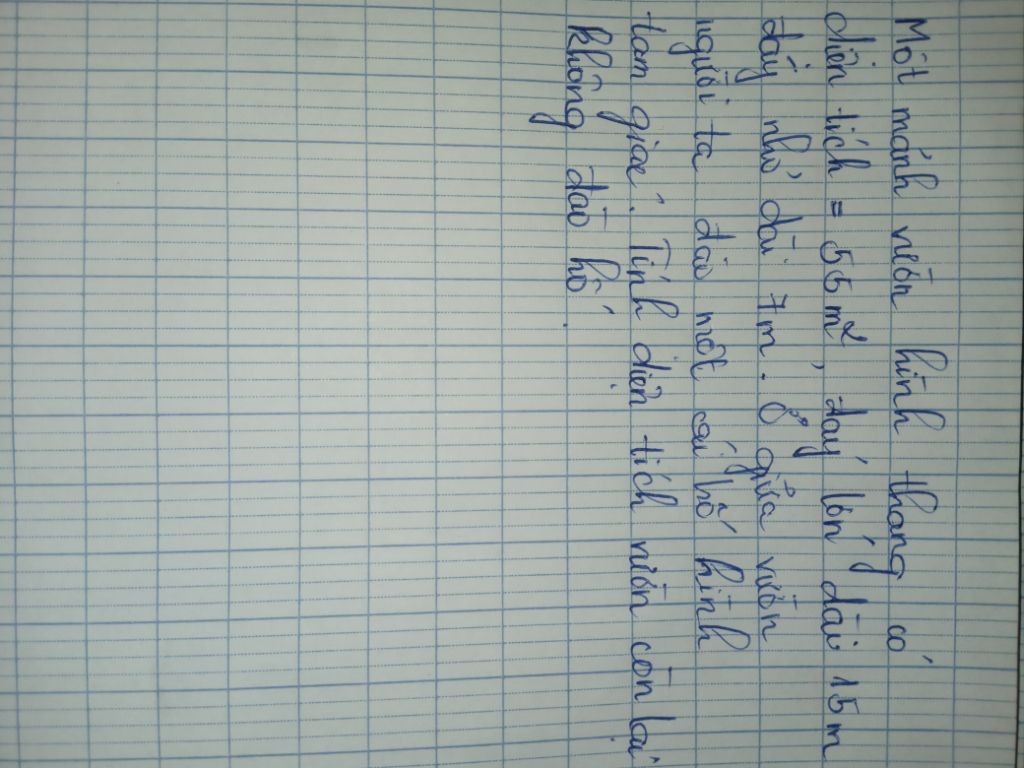 Một mảnh vườn hình thang có
diện tích = 55m², đáy lớn dài 15m
đáy nhỏ dài 7m. Ở giữa vườn
người ta đào một cái hố hình
tam giác. Tính diện tích vườn còn lại
không đào hố.